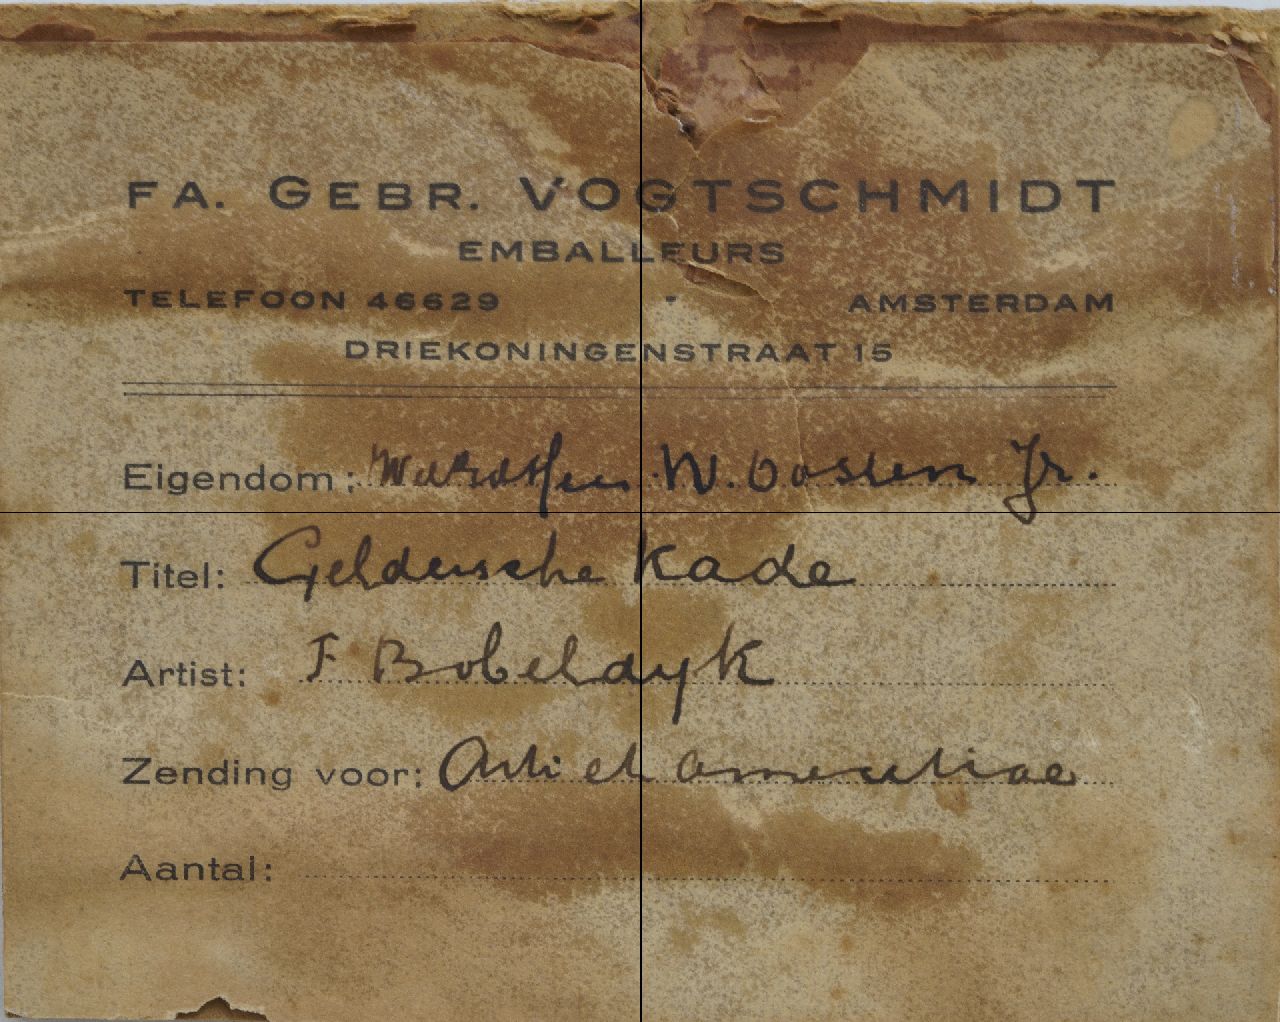 FA. GEBR. VOGTSCHMIDT
EMBALLEURS
TELEFOON 46629 · AMSTERDAM
DRIEKONINGENSTRAAT 15
Eigendom: W. Oosten Jr.
Titel: Geldersche kade
Artist: F Bobeldyk
Zending voor: Arti et amicitiae
Aantal: